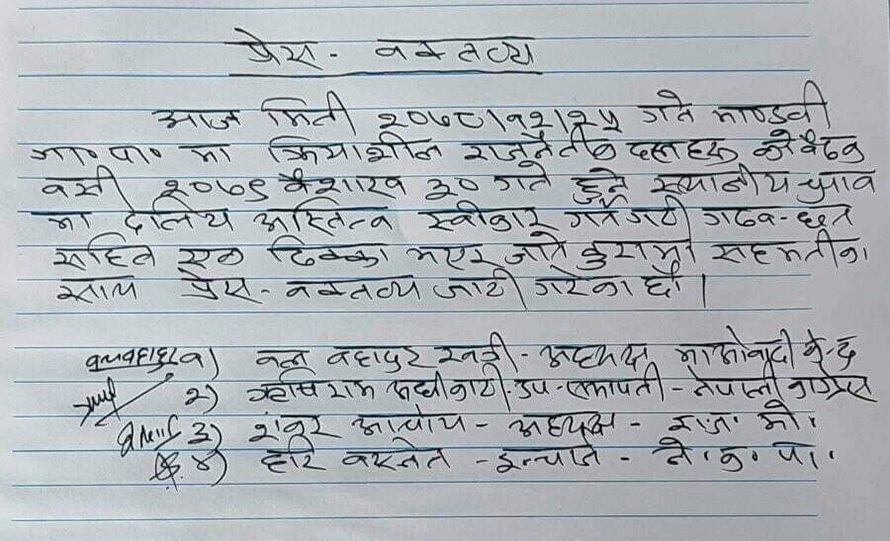 प्रेस - वक्तव्य
आज मिती २०७८।१२।२५ गते माण्डवी
गा॰ पा॰ मा क्रियाशील राजनैतीक दलहरू को बैठक
वसी २०७९ बैशाख ३० गते हुने स्थानीय चुनाव
मा दलिय अस्तित्व स्वीकार गर्दै गठबन्धन
सहित एक ढिक्का भएर जाने कुरामा सहमतीका
साथ प्रेस - वक्तव्य जारी गरेका छौं।
१) वहादुर खत्री - अध्यक्ष माओवादी के॰द
२) ऋषि राम अधीकारी - उप - सभापती - नेपाली काग्रेस
३) शंकर आचार्य - अध्यक्ष - रा.ज. मो.
४) हरि वस्नेत - इन्चार्ज - ने. क. पा.